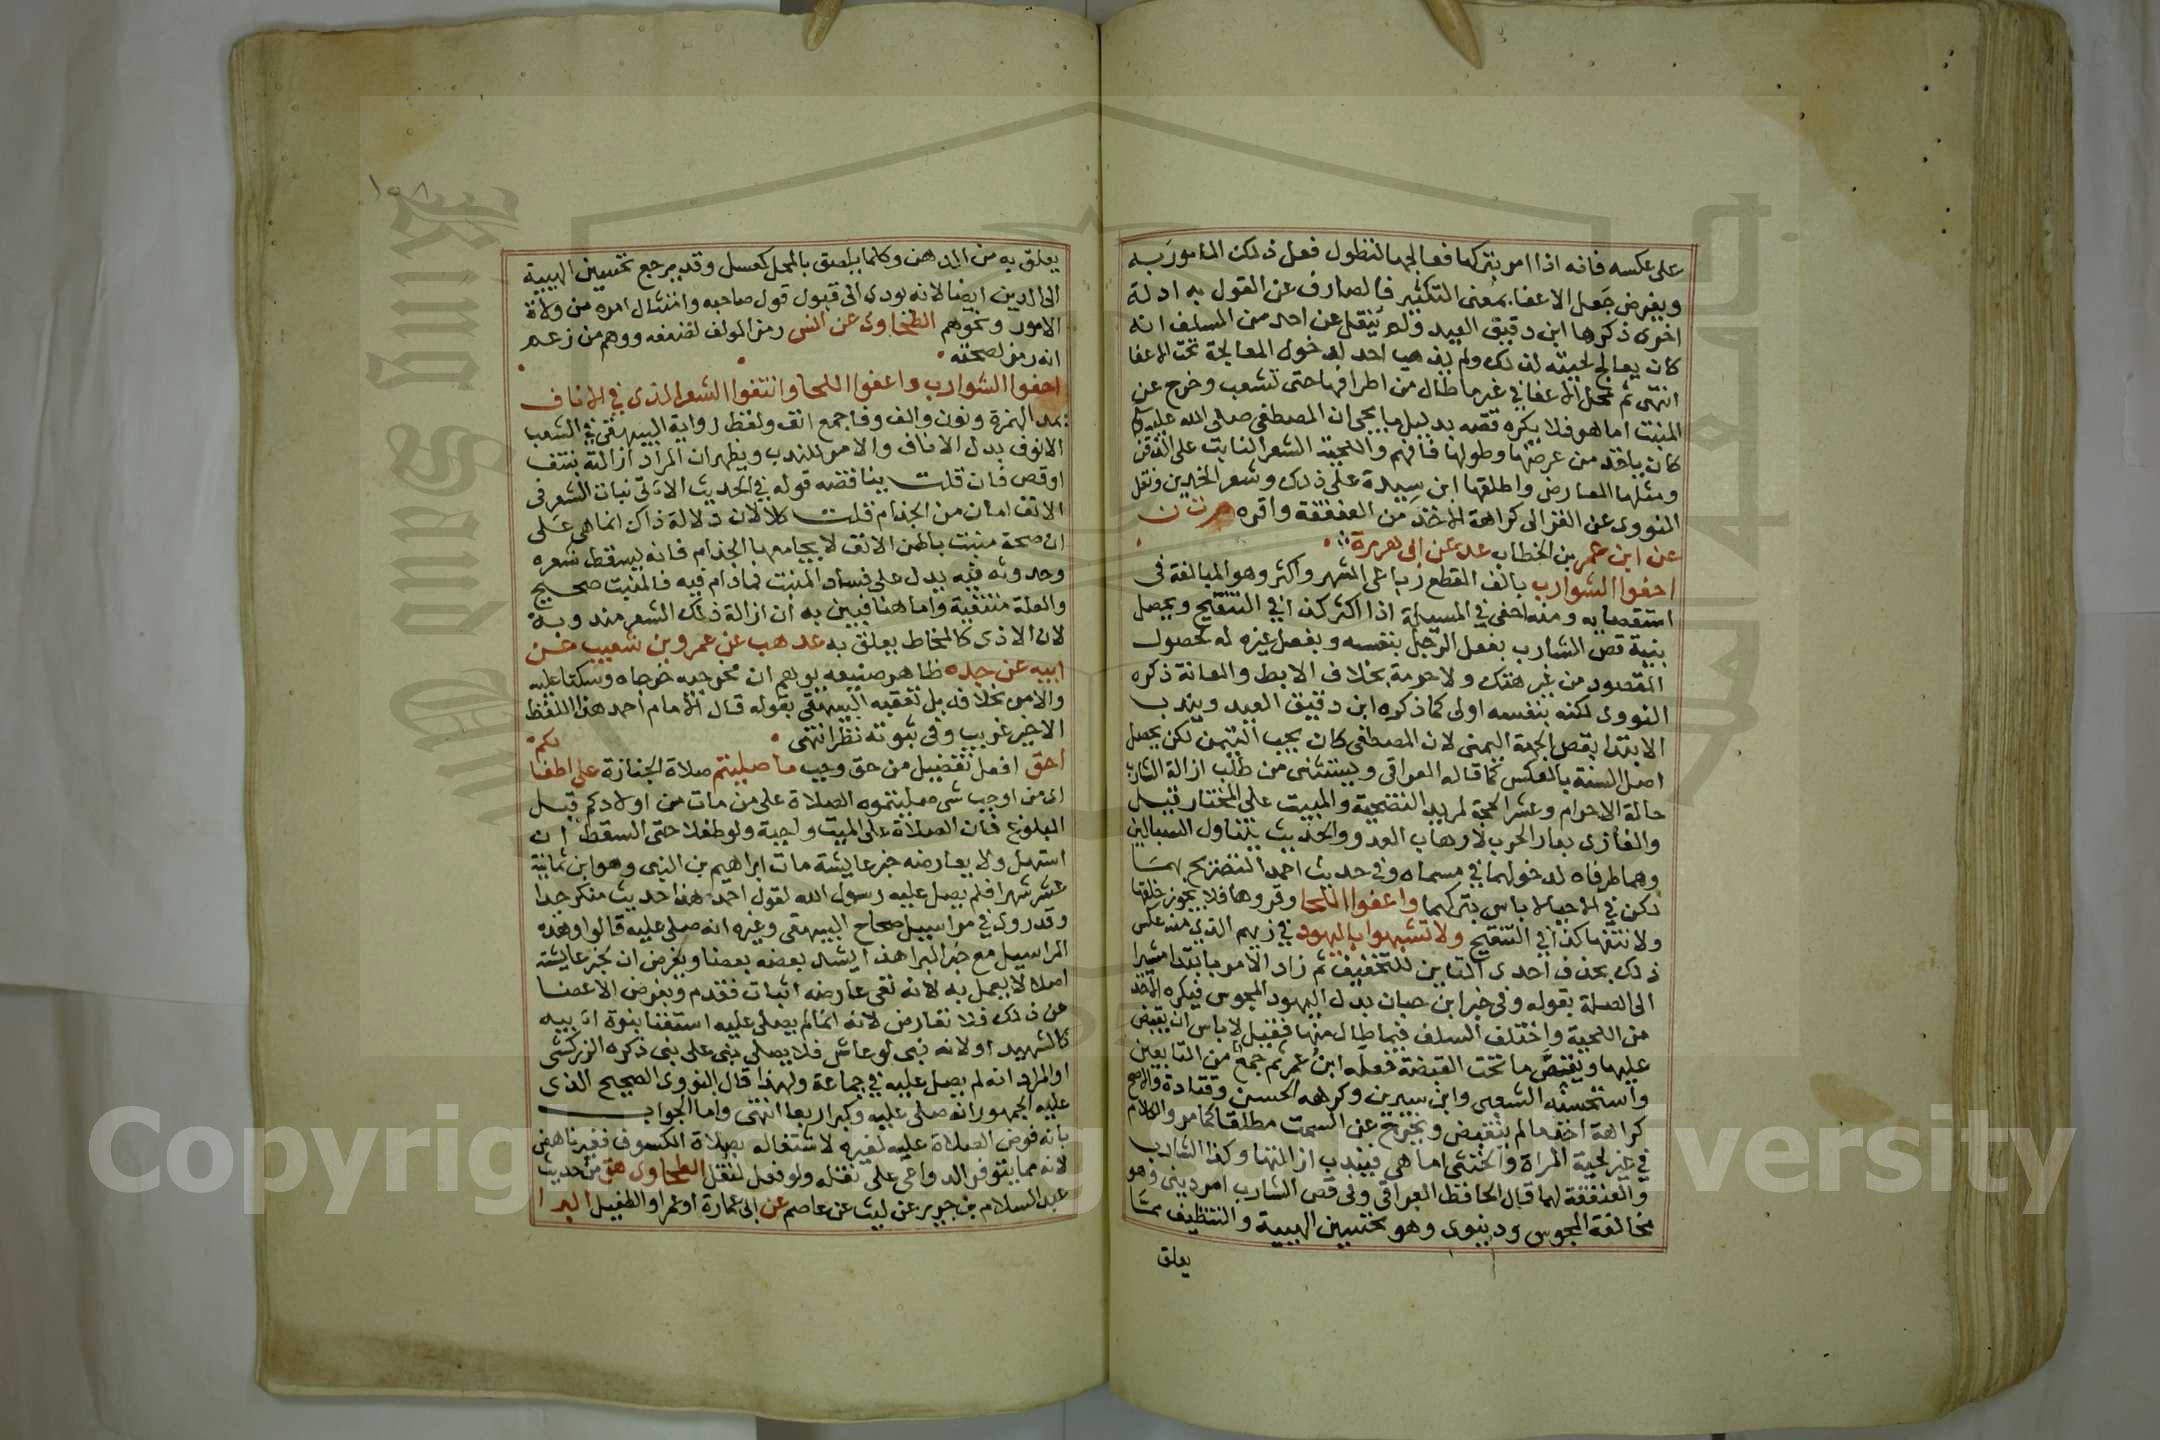 على عكسه فانه اذا امر بتركها فعالجها لتطول فعل ذلك المامور به
وبفرض جعل الاعفا بمعنى التكثير فالصارف عن القول به ادلة
اخرى ذكرها ابن دقيق العيد ولم ينقل عن احد من السلف انه
كان يعالج لحيته لذلك ولم يذهب احد لدخول المعالجة تحت الاعفا
انتهى ثم محل الاعفا في غير ما طال من اطرافها حتى تشعب وخرج عن
المنبت اما هو فلا يكره قصه بدليل ما يجي ان المصطفى صلى الله عليه
كان ياخذ من عرضها وطولها فافهم واللحية الشعر النابت على الذقن
ومثلها العارض واطلقها ابن سيدة على ذلك وشعر الخدين ونقل
النووى عن الغزالى كراهة الاخذ من العنفقة واقره م ت ن
عن ابن عمر بن الخطاب عد عن ابى هريرة
احفوا الشوارب بالف القطع رباعى اشهر واكثر وهو المبالغة فى
استقصايه ومنه احفى في المسيلة اذا اكثر كذا في التنقيح ويحصل
بنية قص الشارب بفعل الرجل بنفسه وبفعل غيره له لحصول
المقصود من غير هتك ولا حرمة بخلاف الابط والعانة ذكره
النووى لكنه بنفسه اولى كما ذكره ابن دقيق العيد ويندب
الابتدا بقص الجهة اليمنى لان المصطفى كان يحب التيمن لكن يحصل
اصل السنة بالعكس كما قاله العراقى ويستثنى من طلب ازالة الشارب
حالة الاحرام وعشر الحجة لمريد التضحية والميت على المختار قيل
والغازى بدار الحرب لارهاب العدو والحديث يتناول السبالين
وهما طرفاه لدخولهما في مسماه وفى حديث احمد التصريح بهما
لكن في الاحيا لا باس بتركهما واعفوا اللحا وفروها فلا يجوز حلقها
ولا نتفها كذا في التنقيح ولا تشبهوا باليهود في زيهم الذي منه عكس
ذلك بحذف احدى التاين للتخفيف ثم زاد الامر تاكيدا مشيرا
الى العلة بقوله وفى خبر ابن حبان بدل اليهود المجوس فيكره الاخذ
من اللحية واختلف السلف فيما طال منها فقيل لا باس ان يقبض
عليها ويقص ما تحت القبضة فعله ابن عمر ثم جمع من التابعين
واستحسنه الشعبى وابن سيرين وكرهه الحسن وقتادة والاصح
كراهة اخذ ما لم يتشعث ويخرج عن السمت مطلقا كما مر والكلام
في غير لحية المراة والخنثى اما هى فيندب ازالتها وكذا الشارب
والعنفقة لهما قال الحافظ العراقى وفى قص الشارب امر دينى وهو
مخالفة المجوس ودنيوى وهو تحسين الهيية والتنظيف مما
يعلق
١٥٨
يعلق به من الدهن وكلما يلصق بالمحل كعسل وقد يرجع تحسين الهيية
الى الدين ايضا لانه يودى الى قبول قول صاحبه وامتثال امره من ولاة
الامور ونحوهم الطحاوى عن انس رمز المولف لضعفه ووهم من زعم
انه رمز لصحته
احفوا الشوارب واعفوا اللحا وانتفوا الشعر الذى في الاناف
بمد الهمزة ونون والف وفا جمع انف ولفظ رواية البيهقى في الشعب
الانوف بدل الاناف والامر للندب ويظهر ان المراد ازالته بنتف
او قص فان قلت يناقضه قوله في الحديث الاتى نبات الشعر فى
الانف امان من الجذام قلت كلا لان دلالة ذاك انما هى على
ان صحة منبت باطن الانف لا يجامعها الجذام فانه يسقط شعره
وحدوثه فيه يدل على فساد المنبت فمادام فيه فالمنبت صحيح
والعلة منتفية واما هنا فبين به ان ازالة ذلك الشعر مندوبة
لان الاذى كالمخاط يعلق به عد هب عن عمرو بن شعيب عن
ابيه عن جده ظاهر صنيعه يوهم ان مخرجيه خرجاه وسكتا عليه
والامر بخلافه بل تعقبه البيهقى بقوله قال الامام احمد هذا اللفظ
الاخير غريب وفى ثبوته نظر انتهى
احق افعل تفضيل من حق وجب ما صليتم صلاة الجنازة على اطفالكم
اى من اوجب شى صليتموه الصلاة على من مات من اولادكم قبل
البلوغ فان الصلاة على الميت واجبة ولو طفلا حتى السقط ان
استهل ولا يعارضه خبر عايشة مات ابراهيم بن النبى وهو ابن ثمانية
عشر شهرا فلم يصل عليه رسول الله لقول احمد هذا حديث منكر جدا
وقد روى في مراسيل صحاح البيهقى وغيره انه صلى عليه قالوا وهذه
المراسيل مع خبر البرا هذا يشد بعضه بعضا وبفرض ان لخبر عايشة
اصلا لا يعمل به لانه نفى عارضه اثبات فقدم وبفرض الاغضا
عن ذلك فلا تعارض لانه انما لم يصلى عليه استغنا بنبوة ابيه
كالشهيد او لانه نبى لو عاش فلا يصلى نبى على نبى ذكره الزركشى
او المراد انه لم يصل عليه في جماعة ولهذا قال النووى الصحيح الذى
عليه الجمهور انه صلى عليه وكبر اربعا انتهى واما الجواب
بانه فوض الصلاة عليه لغيره لاشتغاله بصلاة الكسوف فغير ناهض
لانه مما يتوفر الدواعى على نقله ولو فعل لنقل الطحاوى هق من حديث
عبد السلام بن حرب عن ليث عن عاصم عن ابى عمارة او عمر او الطفيل البرا
Copyright © King Saud University